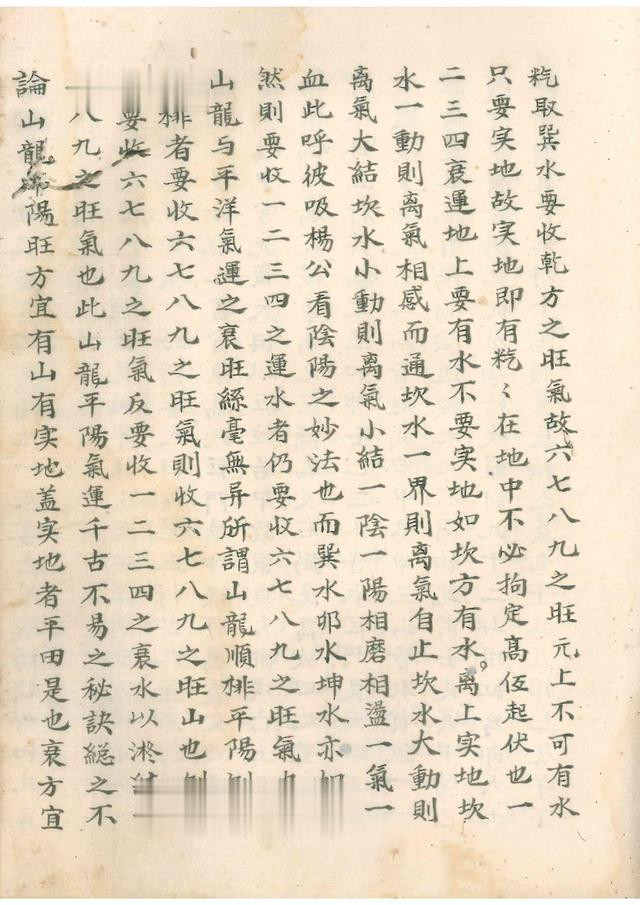 籺取巽水要收乾方之旺氣故六七八九之旺元上不可有水
只要实地故实地即有籺〻在地中不必拘定髙低起伏也一
二三四衰運地上要有水不要实地如坎方有水離上实地坎
水一動則离氣相感而通坎水一界則离氣自止坎水大動則
离氣大结坎水小動則离氣小结一陰一陽相磨相盪一氣一
血此呼彼吸楊公看陰陽之妙法也而巽水卯水坤水亦
然則要收一二三四之運水者仍要收六七八九之旺氣
山龍与平洋氣運之衰旺絲毫無异所謂山龍順排平陽
排者要收六七八九之旺氣則收六七八九之旺山也
要收六七八九之旺氣反要收一二三四之衰水以
八九之旺氣也此山龍平陽氣運千古不易之秘訣総之不
論山龍陽旺方宜有山有实地盖实地者平田是也衰方宜